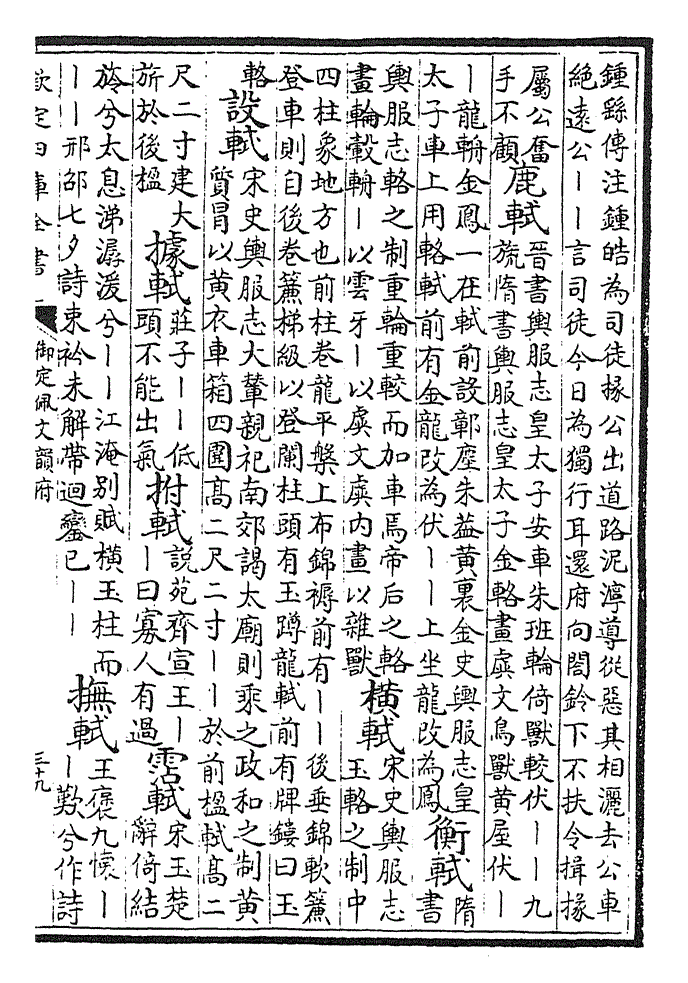 鍾繇傳注鍾皓為司徒掾公出道路泥濘導從惡其相灑去公車
絶遠公丨丨言司徒今日為獨行耳還府向閤鈴下不扶令揖掾
屬公奮
手不顧
鹿軾
晉書輿服志皇太子安車朱班輪倚獸較伏丨丨九
旒隋書輿服志皇太子金輅畫虡文鳥獸黄屋伏丨
丨龍輈金鳳一在軾前設鄣塵朱葢黄裏金史輿服志皇
太子車上用輅軾前有金龍改為伏丨丨上坐龍改為鳳
衡軾
隋
書
輿服志輅之制重輪重較而加車焉帝后之輅
畫輪轂輈丨以雲牙丨以虡文虡内畫以雜獸
橫軾
宋史輿服志
玉輅之制中
四柱象地方也前柱卷龍平槃上布錦褥前有丨丨後垂錦軟簾
登車則自後卷簾梯級以登闌柱頭有玉蹲龍軾前有牌鏤曰玉
輅
設軾
宋史輿服志大輦親祀南郊謁太廟則乘之政和之制黄
質冒以黄衣車箱四圍高二尺二寸丨丨於前楹軾高二
尺二寸建大
旂於後楹
據軾
莊子丨丨低
頭不能出氣
拊軾
說苑齊宣王丨
丨曰寡人有過
霑軾
宋玉楚
辭倚結
軨兮太息涕潺湲兮丨丨江淹别賦橫玉柱而
丨丨邢邵七夕詩束衿未解帶迴鑾已丨丨
撫軾
王褒九懷丨
丨歎兮作詩
欽定四庫全書
御定佩文韻府
三十九